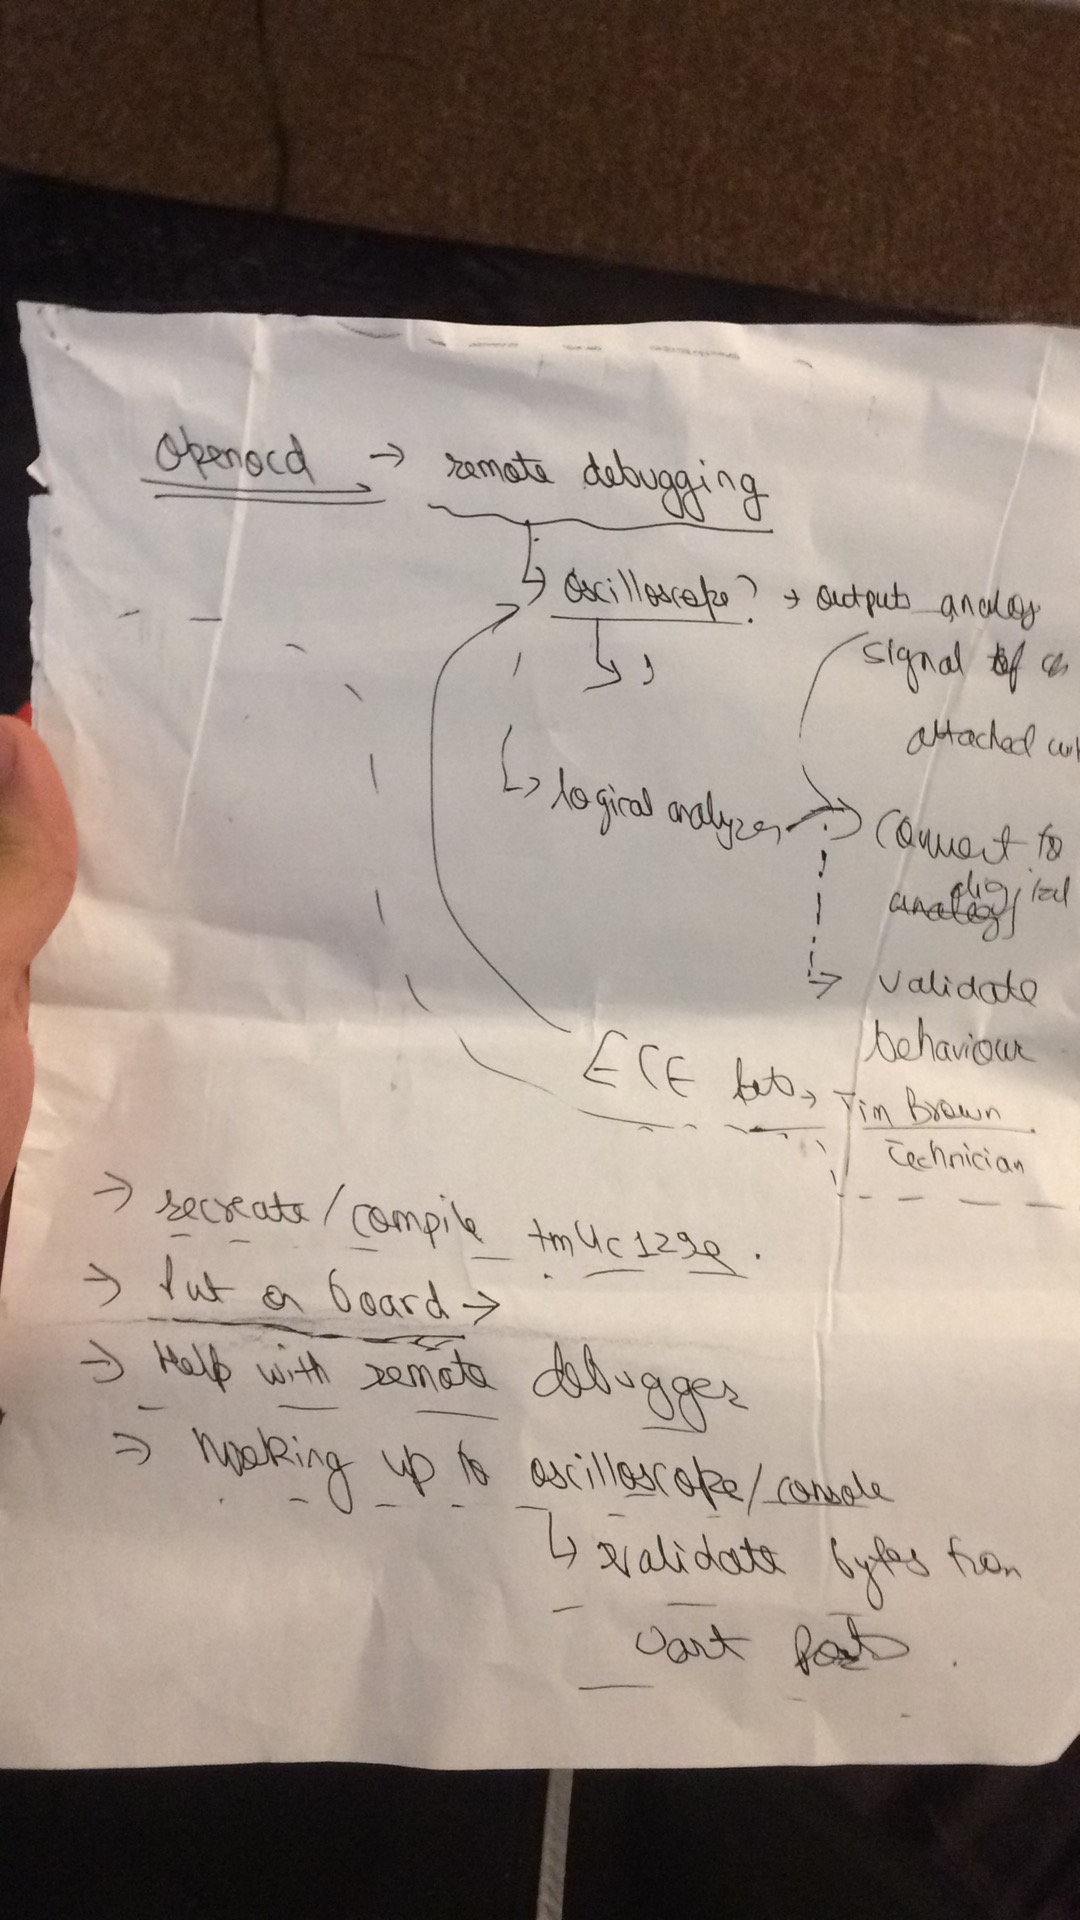 Openocd → remote debugging
↳ oscilloscope? → outputs analog
signal of
attached
↳ logical analyzer → Convert to
digital
analog
→ validate
behaviour
ECE → Tim Brown
Technician
→ recreate/compile tm4c129e.
→ Put on board →
→ Help with remote debugger
→ Hooking up to oscilloscope/console
↳ validate bytes from
Uart Ports.